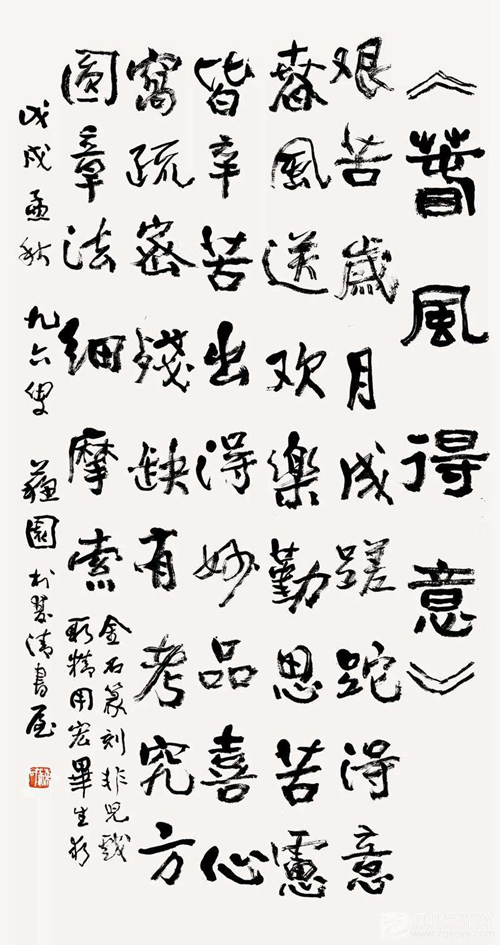 《萅風得意》
艰苦歲月成蹉跎得意
春風送欢樂勤思苦慮
皆辛苦出得妙品喜心
窩疏密殘缺有考究方
圓章法細摩索
金石篆刻非兒戲
取精用宏畢生
戊戌孟秋 九六叟 蘓園 於清書屋